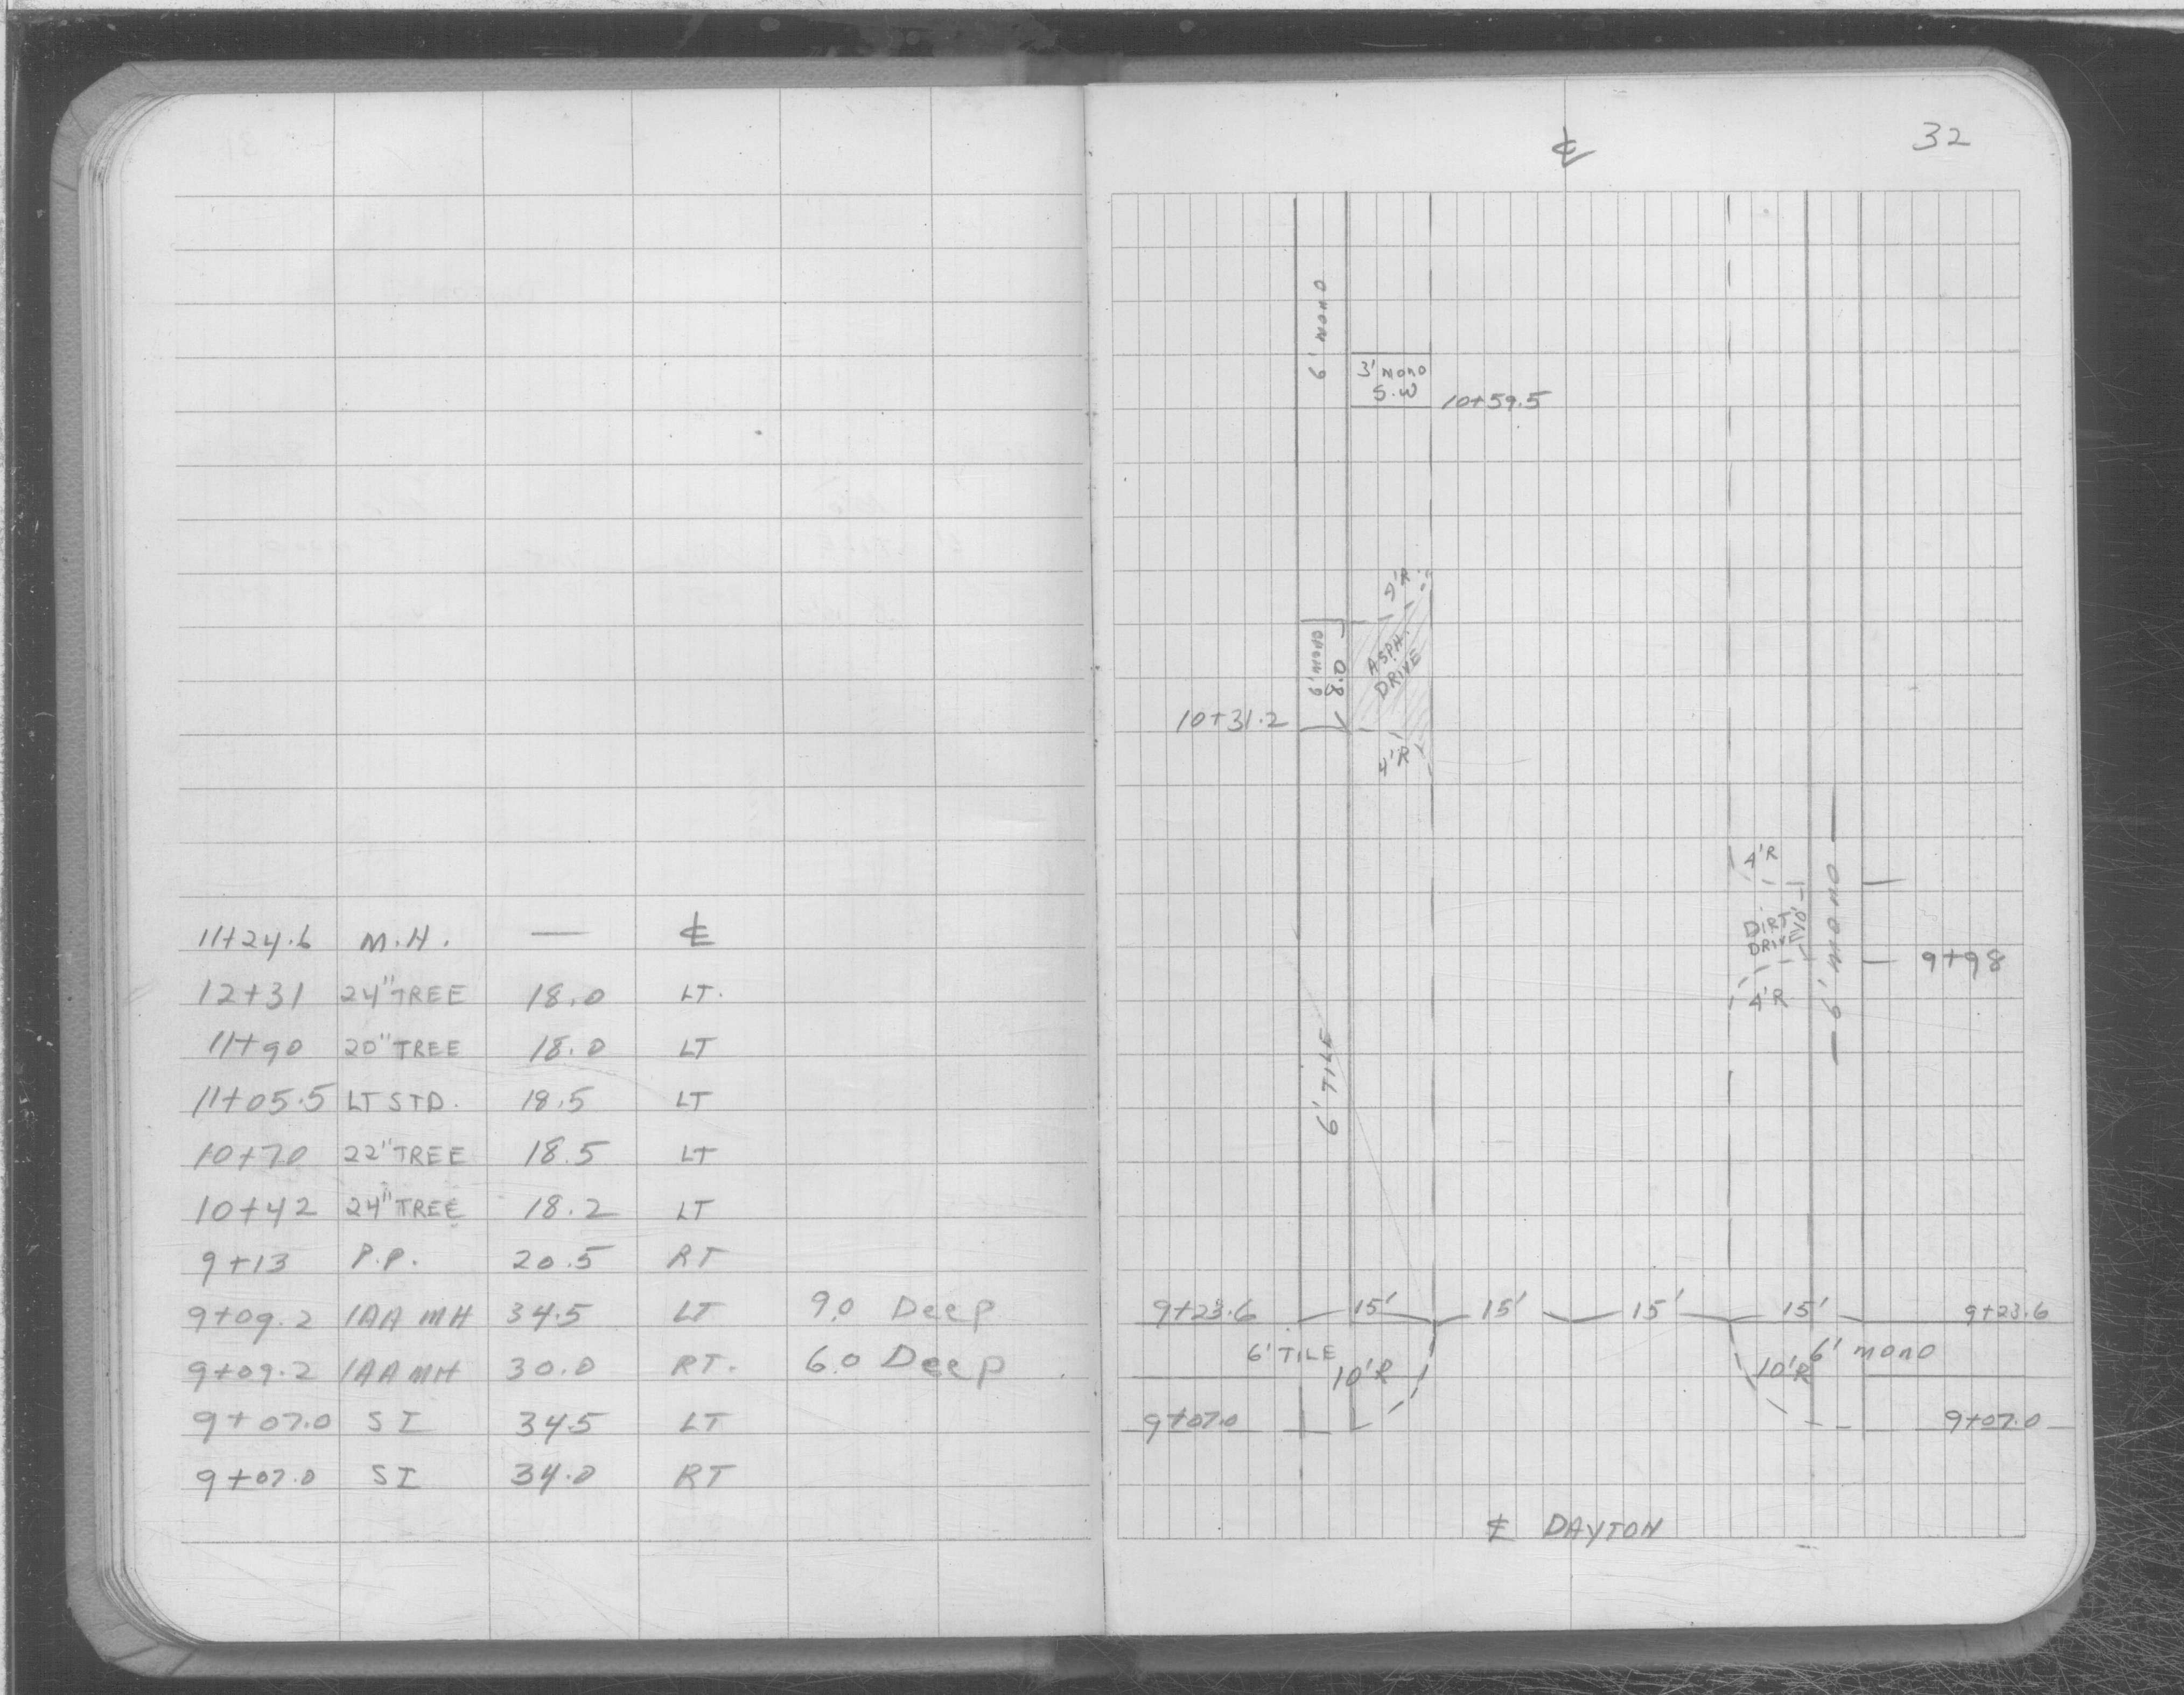 11+24.6 M.H. — ℄
12+31 24" TREE 18.0 LT.
11+90 20" TREE 18.0 LT
11+05.5 LT STD. 18.5 LT
10+70 22" TREE 18.5 LT
10+42 24" TREE 18.2 LT
9+13 P.P. 20.5 RT
9+09.2 1AA MH 34.5 LT 9.0 Deep
9+09.2 1AA MH 30.0 RT. 6.0 Deep
9+07.0 SI 34.5 LT
9+07.0 SI 34.0 RT
℄ 32
6' MONO
3' mono
S.W
10+59.5
6' MONO
8.0
ASPH.
DRIVE
10+31.2
4'R
4'R
DIRT
DRIVE
10'
6' MONO
9+98
4'R
6' TILE
9+23.6 15' 15' 15' 15' 9+23.6
6' TILE 10'R 10'R 6' mono
9+07.0 9+07.0
℄ DAYTON